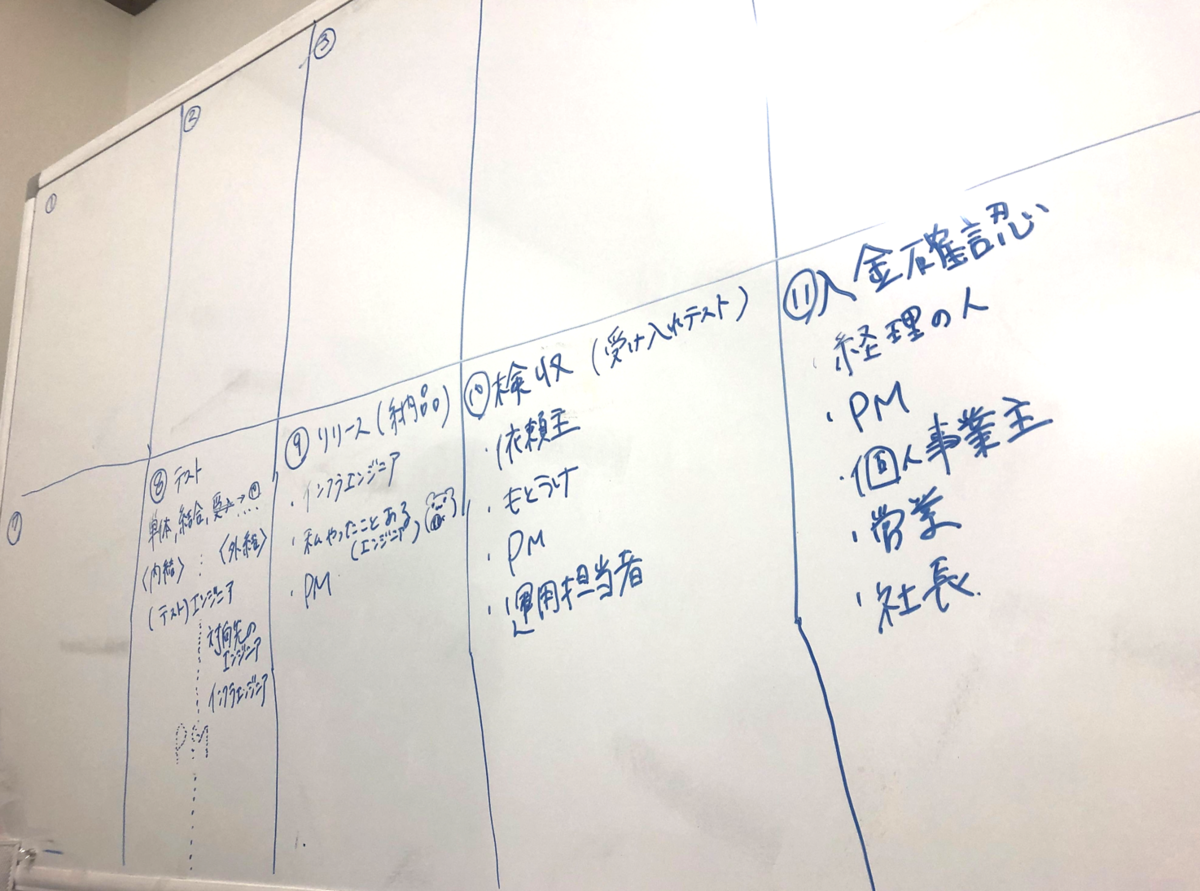 ①
②
③
⑦
⑧ テスト
単体, 結合, 要 → ⑩
〈内結〉 : 〈外結〉
(テスト)エンジニア
対向先の
エンジニア
インフラエンジニア
PM
⑨ リリース (納品)
・インフラエンジニア
・私やったことある
(エンジニア)
・PM
⑩ 検収 (受け入れテスト)
・依頼主
・もとうけ
・PM
・運用担当者
⑪ 入金確認
・経理の人
・PM
・個人事業主
・営業
・社長